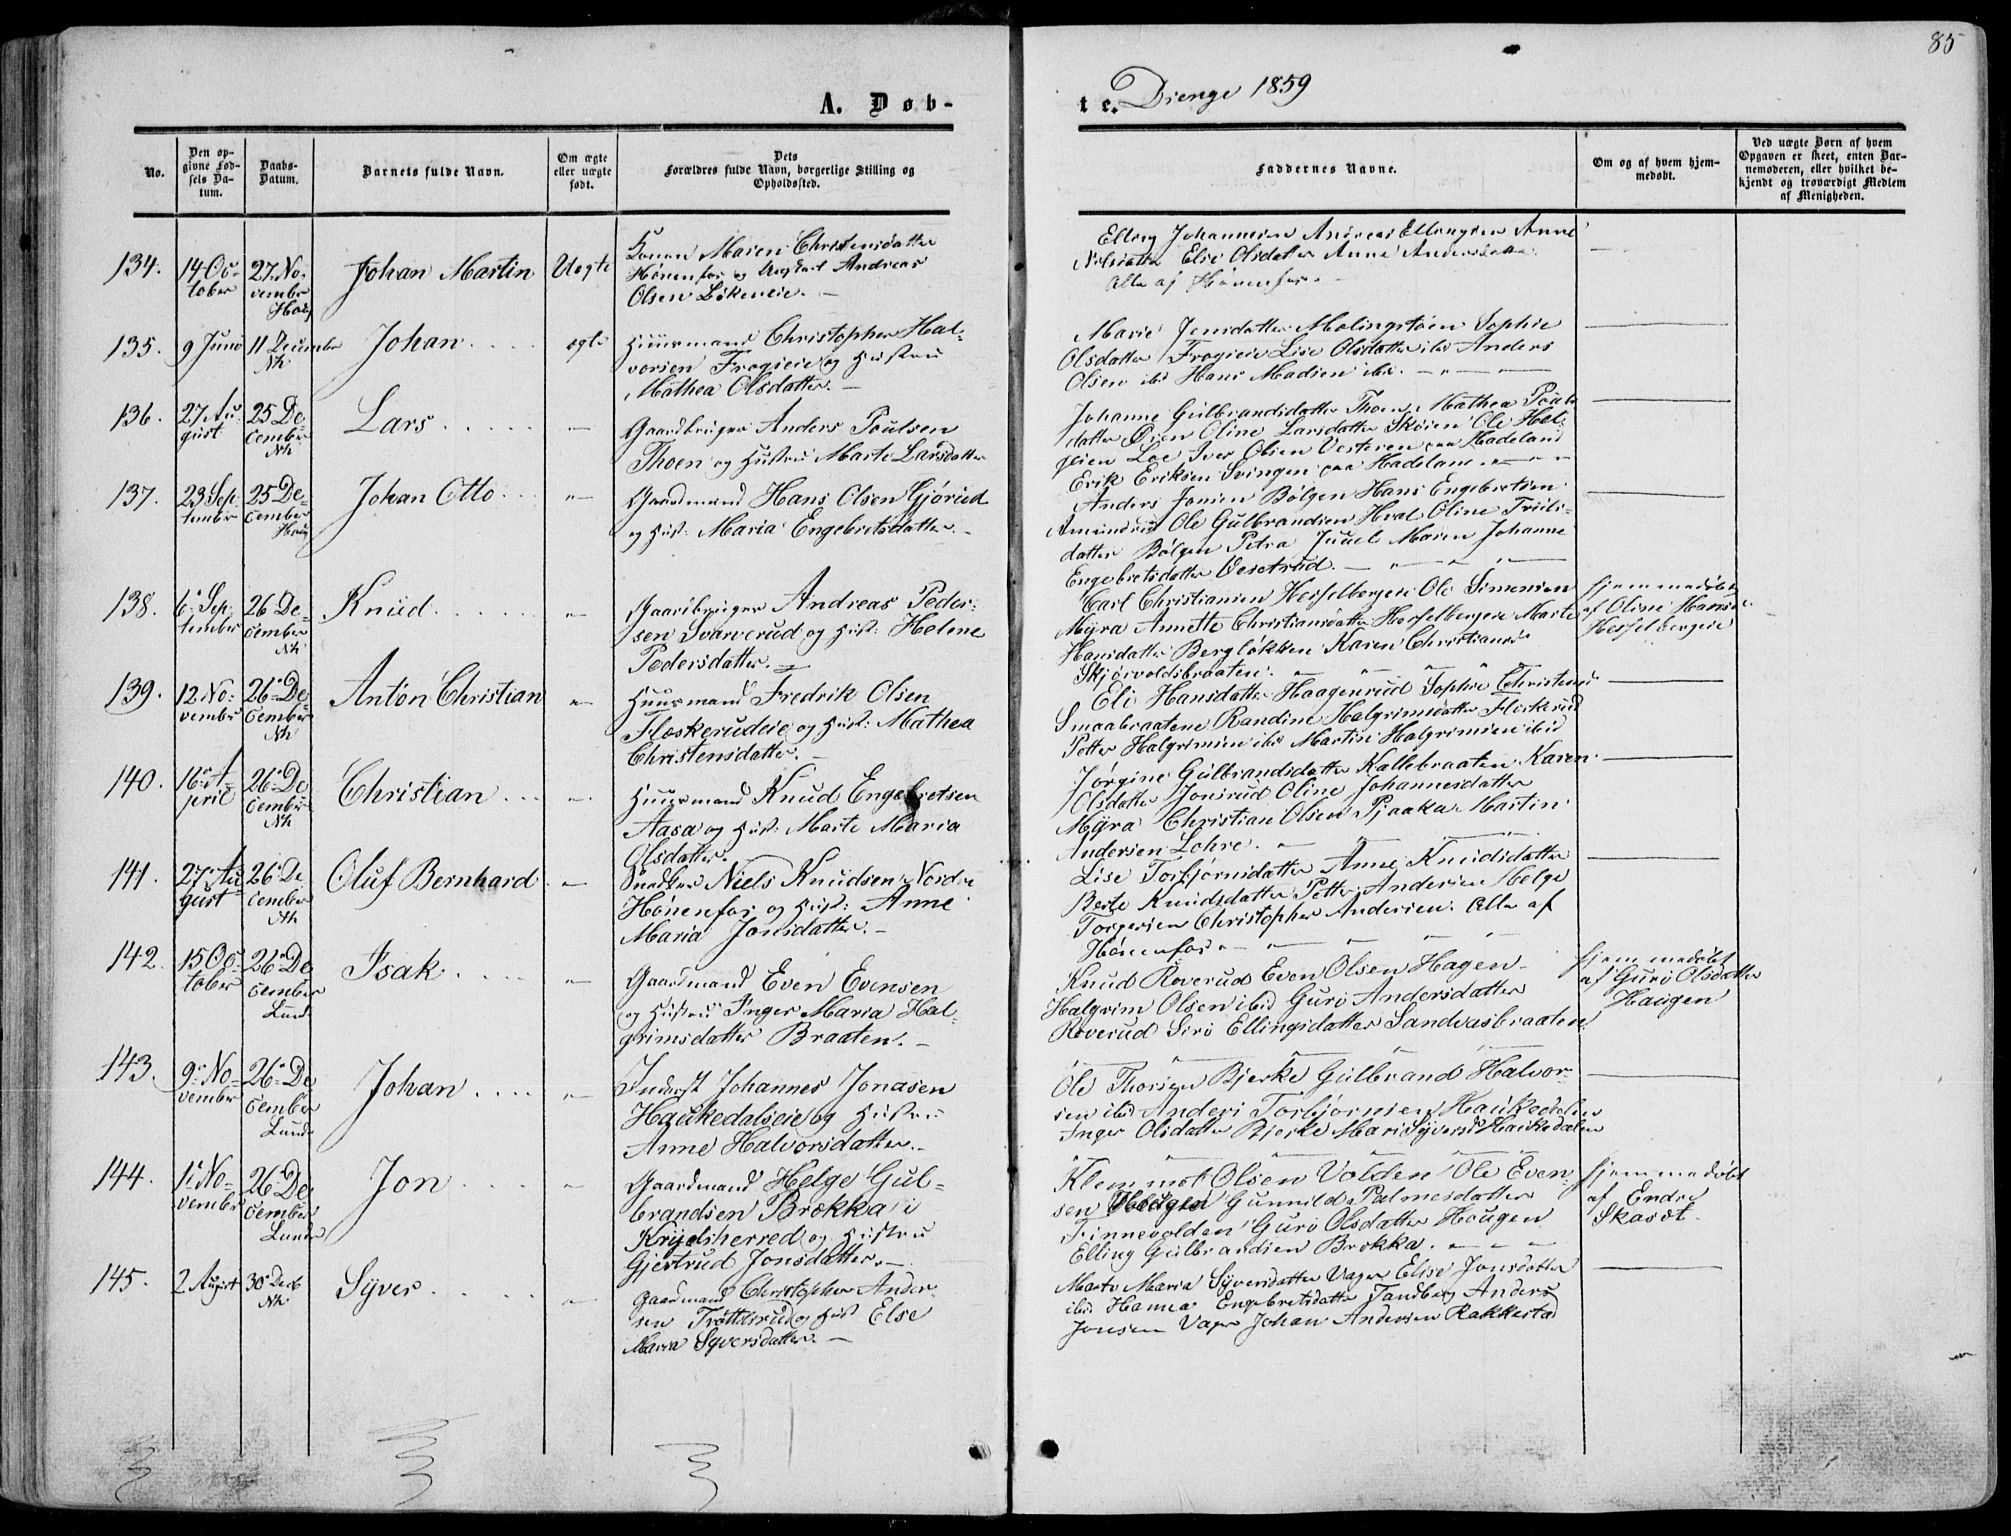 85
A. Døb-
te. Drenge 1859
No.
Den op-
givne Fød-
sels Da-
tum.
Daabs-
Datum.
Barnets fulde Navn.
Om ægte
eller uægte
født.
Dets
Forældres fulde Navn, borgerlige Stilling og
Opholdssted.
Faddernes Navne.
Om og af hvem hjem-
medøbt.
Ved uægte Børn af hvem
Opgaven er skeet, enten Bar-
nemoderen, eller hvilket be-
kjendt og troværdigt Medlem
af Menigheden.
134.
14 Oc-
tober
27. No-
vember
Houg
Johan Martin
Uegte
Maren Christensdatter
Hønenfos og Ungkarl Andreas
Olsen Løkeneie. —
Elling Johannesen Andreas Ellingsen Anne
Nilsdatter Else Olsdatter Anne Andersdatter
Alle af Hønenfos. -
135.
9 Juni
11 December
Nh
Johan . . . .
egte
Huusmand Christopher Hal-
vorsen Frogieie og Hustru
Mathea Olsdatter. —
Marie Jensdatter Molingstøen Sophie
Olsdatter Frogieie Lise Olsdatter ibd Anders
Olsen ibd Hans Madsen ibd. — " — " —
136.
27 Au-
gust
25 De-
cember
Nh
Lars . . . . .
Gaardbruger Anders Poulsen
Thoen og Hustru Marte Larsdatter
Johanne Gulbrandsdatter Thoen Mathea Pouls-
datter Øien Oline Larsdatter Skøien Ole Hel-
gesen Loe Iver Olsen Vesteren paa Hadeland
Erik Eriksen Svingen paa Hadeland
137.
23 Sep-
tember
25 De-
cember
Houg
Johan Otto . . .
Gaardmand Hans Olsen Gjørud
og Hust: Maria Engebretsdatter. -
Anders Jonsen Bølgen Hans Engebretsen
Amundrud Ole Gulbrandsen Hval Oline Truls-
datter Bølgen Petra Juuel Maren Johanne
Engebretsdatter Vesetrud. —
138.
6 Sep-
tember
26 De-
cember
Nh
Knud . . . . .
Gaardbruger Andreas Peder-
sen Svarverud og Hust: Helene
Pedersdatter. —
Carl Christiansen Hesselbergeie Ole Simensen
Myra Annette Christiansdatter Hesselbergeie Marte
Hansdatter Bergløkken Karen Christians
Skjørvoldsbraaten.
hjemmedøbt
af Oline Hansd.
Hesselbergeie
139.
12 No-
vember
26 De-
cember
Nh
Anton Christian
Huusmand Fredrik Olsen
Fleskerudeie og Hust: Mathea
Christensdatter. —
Eli Hansdatter Haagenrud Sophie Christensd.
Smaabraatene Randine Halgrimsdatter Fleskerud
Petter Halgrimsen ibd Martin Halgrimsen ibid
140.
16 A-
pril
26 De-
cember
Nh
Christian . . .
Huusmand Knud Engebretsen
Aasa og Hust: Marte Maria
Olsdatter.
Jørgine Gulbrandsdatter Kallebraaten Karen
Olsdatter Jonsrud Oline Johannesdatter
Myra Christian Olsen Pjaaka Martin
Andersen Lohre. —
141.
27 Au-
gust
26 De-
cember
Nh
Oluf Bernhard
Snedker Niels Knudsen Nordre
Hønenfos og Hust: Anne
Maria Jonsdatter. -
Lise Torbjørnsdatter Anne Knudsdatter
Berte Knudsdatter Petter Andersen Helge
Torgersen Christopher Andersen. Alle af
Hønenfos
142.
15 Oc-
tober
26 De-
cember
Lunde
Isak . . . .
Gaardmand Even Evensen
og Hustru Inger Maria Hal-
grimsdatter Braaten. —
Knud Roverud Even Olsen Hagen
Halgrim Olsen ibid Guro Andersdatter
Roverud Siro Ellingsdatter Sandvasbraaten
hjemmedøbt
af Guro Olsdatter
Haugen
143.
9 No-
vember
26 De-
cember
Lunde
Johan . . . .
Inderst Johannes Jonasen
Haukedalseie og Hustru
Anne Halvorsdatter. -
Ole Thorsen Bjerke Gulbrand Halvor-
sen ibid Anders Torbjørnsen Haukedalen
Inger Olsdatter Bjerke Mari Syversd Haukedalen
144.
1 No-
vember
26 De-
cember
Lunde
Jon . . . .
Gaardmand Helge Gul-
brandsen Brækka i
Krydsherred og Hustru
Gjertrud Jonsdatter. -
Klemmet Olsen Volden Ole Even-
sen Haugen Gunnild Palmesdatter
Finnevolden Guro Olsdatter Haugen
Elling Gulbrandsen Brækka.
hjemmedøbt
af Endre
Skaset.
145.
2 August
30 Decb
Nh
Syver . . . .
Gaardmand Christopher Ander-
sen Trøttesrud og Hust Else
Maria Syversdatter. —
Marte Maria Syversdatter Vager Elise Jonsdatter
ibid Hanna Engebretsdatter Tandberg Anders
Jonsen Vager Johan Andersen Rakkestad